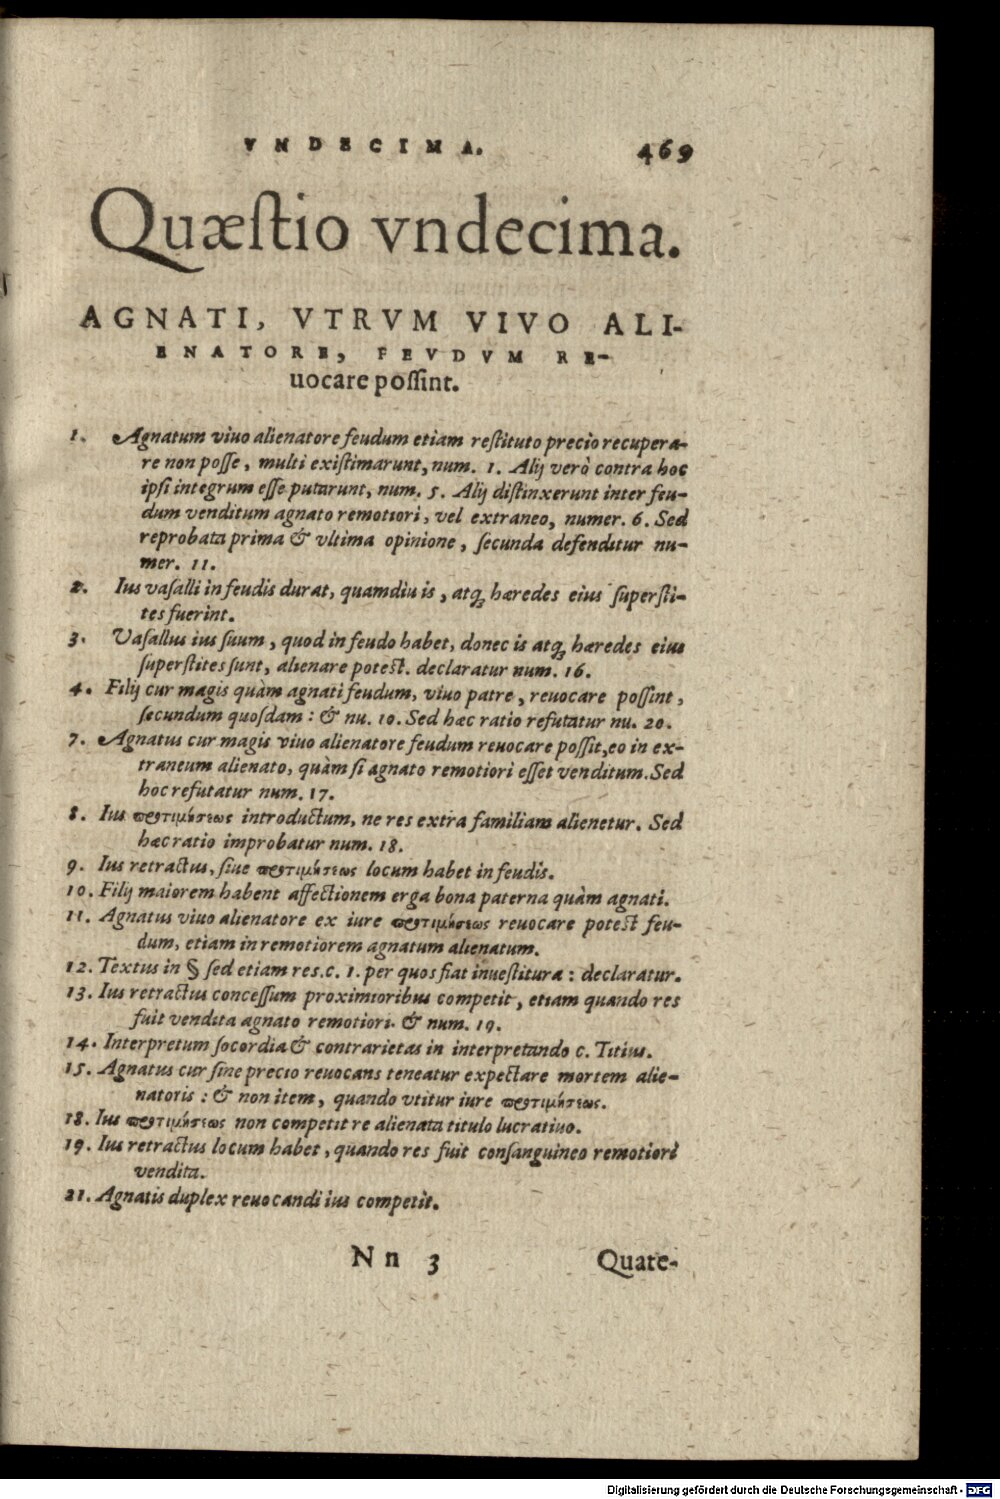 VNDECIMA. 469
Quæſtio vndecima.
AGNATI, VTRVM VIVO ALI-
ENATORE, FEVDVM RE-
uocare poſſint.
1. Agnatum viuo alienatore feudum etiam reſtituto precio recupera-
re non poſſe, multi exiſtimarunt, num. 1. Alij verò contra hoc
ipſi integrum eſſe putarunt, num. 5. Alij diſtinxerunt inter feu-
dum venditum agnato remotiori, vel extraneo, numer. 6. Sed
reprobata prima & vltima opinione, ſecunda defenditur nu-
mer. 11.
2. Ius vaſalli in feudis durat, quamdiu is, atq́ꝫ hæredes eius ſuperſti-
tes fuerint.
3. Vaſallus ius ſuum, quod in feudo habet, donec is atq́ꝫ hæredes eius
ſuperſtites ſunt, alienare poteſt. declaratur num. 16.
4. Filij cur magis quàm agnati feudum, viuo patre, reuocare poſſint,
ſecundum quoſdam: & nu. 10. Sed hæc ratio refutatur nu. 20.
7. Agnatus cur magis viuo alienatore feudum reuocare poſſit, eo in ex-
traneum alienato, quàm ſi agnato remotiori eſſet venditum. Sed
hoc refutatur num. 17.
8. Ius προτιμήσεως introductum, ne res extra familiam alienetur. Sed
hæc ratio improbatur num. 18.
9. Ius retractus, ſiue προτιμήσεως locum habet in feudis.
10. Filij maiorem habent affectionem erga bona paterna quàm agnati.
11. Agnatus viuo alienatore ex iure προτιμήσεως reuocare poteſt feu-
dum, etiam in remotiorem agnatum alienatum.
12. Textus in § ſed etiam res. c. 1. per quos fiat inueſtitura: declaratur.
13. Ius retractus conceſſum proximioribus competit, etiam quando res
fuit vendita agnato remotiori. & num. 19.
14. Interpretum ſocordia & contrarietas in interpretando c. Titius.
15. Agnatus cur ſine precio reuocans teneatur expectare mortem alie-
natoris: & non item, quando vtitur iure προτιμήσεως.
18. Ius προτιμήσεως non competit re alienata titulo lucratiuo.
19. Ius retractus locum habet, quando res fuit conſanguineo remotiori
vendita.
21. Agnatis duplex reuocandi ius competit.
Nn 3 Quare-
Digitalisierung gefördert durch die Deutsche Forschungsgemeinschaft - DFG